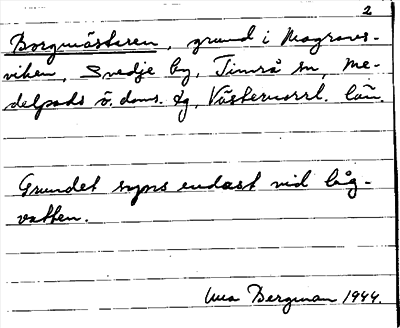 2
Borgmästaren, grund i Magrans-
viken, Svedje by, Timrå sn, Me-
delpads ö. doms. dg, Västernorrl. län.
Grundet syns endast vid låg-
vatten.
Bergman 1944.